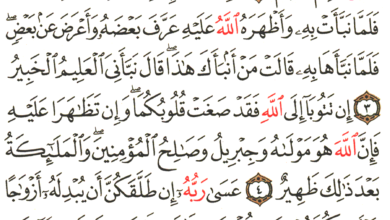 فَلَمَّا نَبَّأَتْ بِهِۦ وَأَظْهَرَهُ ٱللَّهُ عَلَيْهِ عَرَّفَ بَعْضَهُۥ وَأَعْرَضَ عَنۢ بَعْضٍۖ
فَلَمَّا نَبَّأَهَا بِهِۦ قَالَتْ مَنْ أَنۢبَأَكَ هَٰذَاۖ قَالَ نَبَّأَنِيَ ٱلْعَلِيمُ ٱلْخَبِيرُ
٣ إِن تَتُوبَآ إِلَى ٱللَّهِ فَقَدْ صَغَتْ قُلُوبُكُمَاۖ وَإِن تَظَٰهَرَا عَلَيْهِ
فَإِنَّ ٱللَّهَ هُوَ مَوْلَىٰهُ وَجِبْرِيلُ وَصَٰلِحُ ٱلْمُؤْمِنِينَۖ وَٱلْمَلَٰٓئِكَةُ
بَعْدَ ذَٰلِكَ ظَهِيرٌ ٤ عَسَىٰ رَبُّهُۥٓ إِن طَلَّقَكُنَّ أَن يُبْدِلَهُۥٓ أَزْوَٰجًا